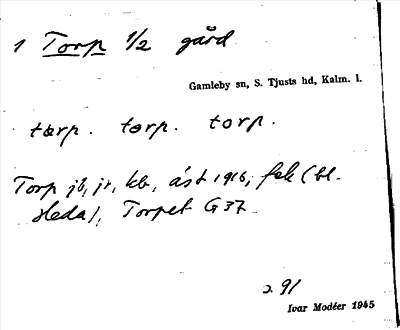 1 Torp 1/2 gård
Gamleby sn, S. Tjusts hd, Kalm. l.
tarp. torp. torp.
Torp jb, jr, kb, äst 1916, fek (bl.
Heda), Torpet G 37
2. 91
Ivar Modéer 1945